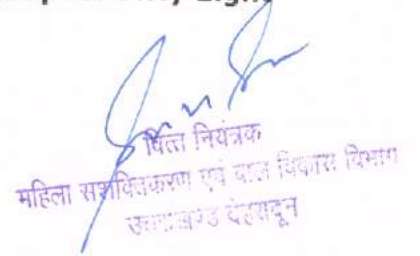 Eight
वित्त नियंत्रक
महिला सशक्तिकरण एवं बाल विकास विभाग
उत्तराखण्ड देहरादून